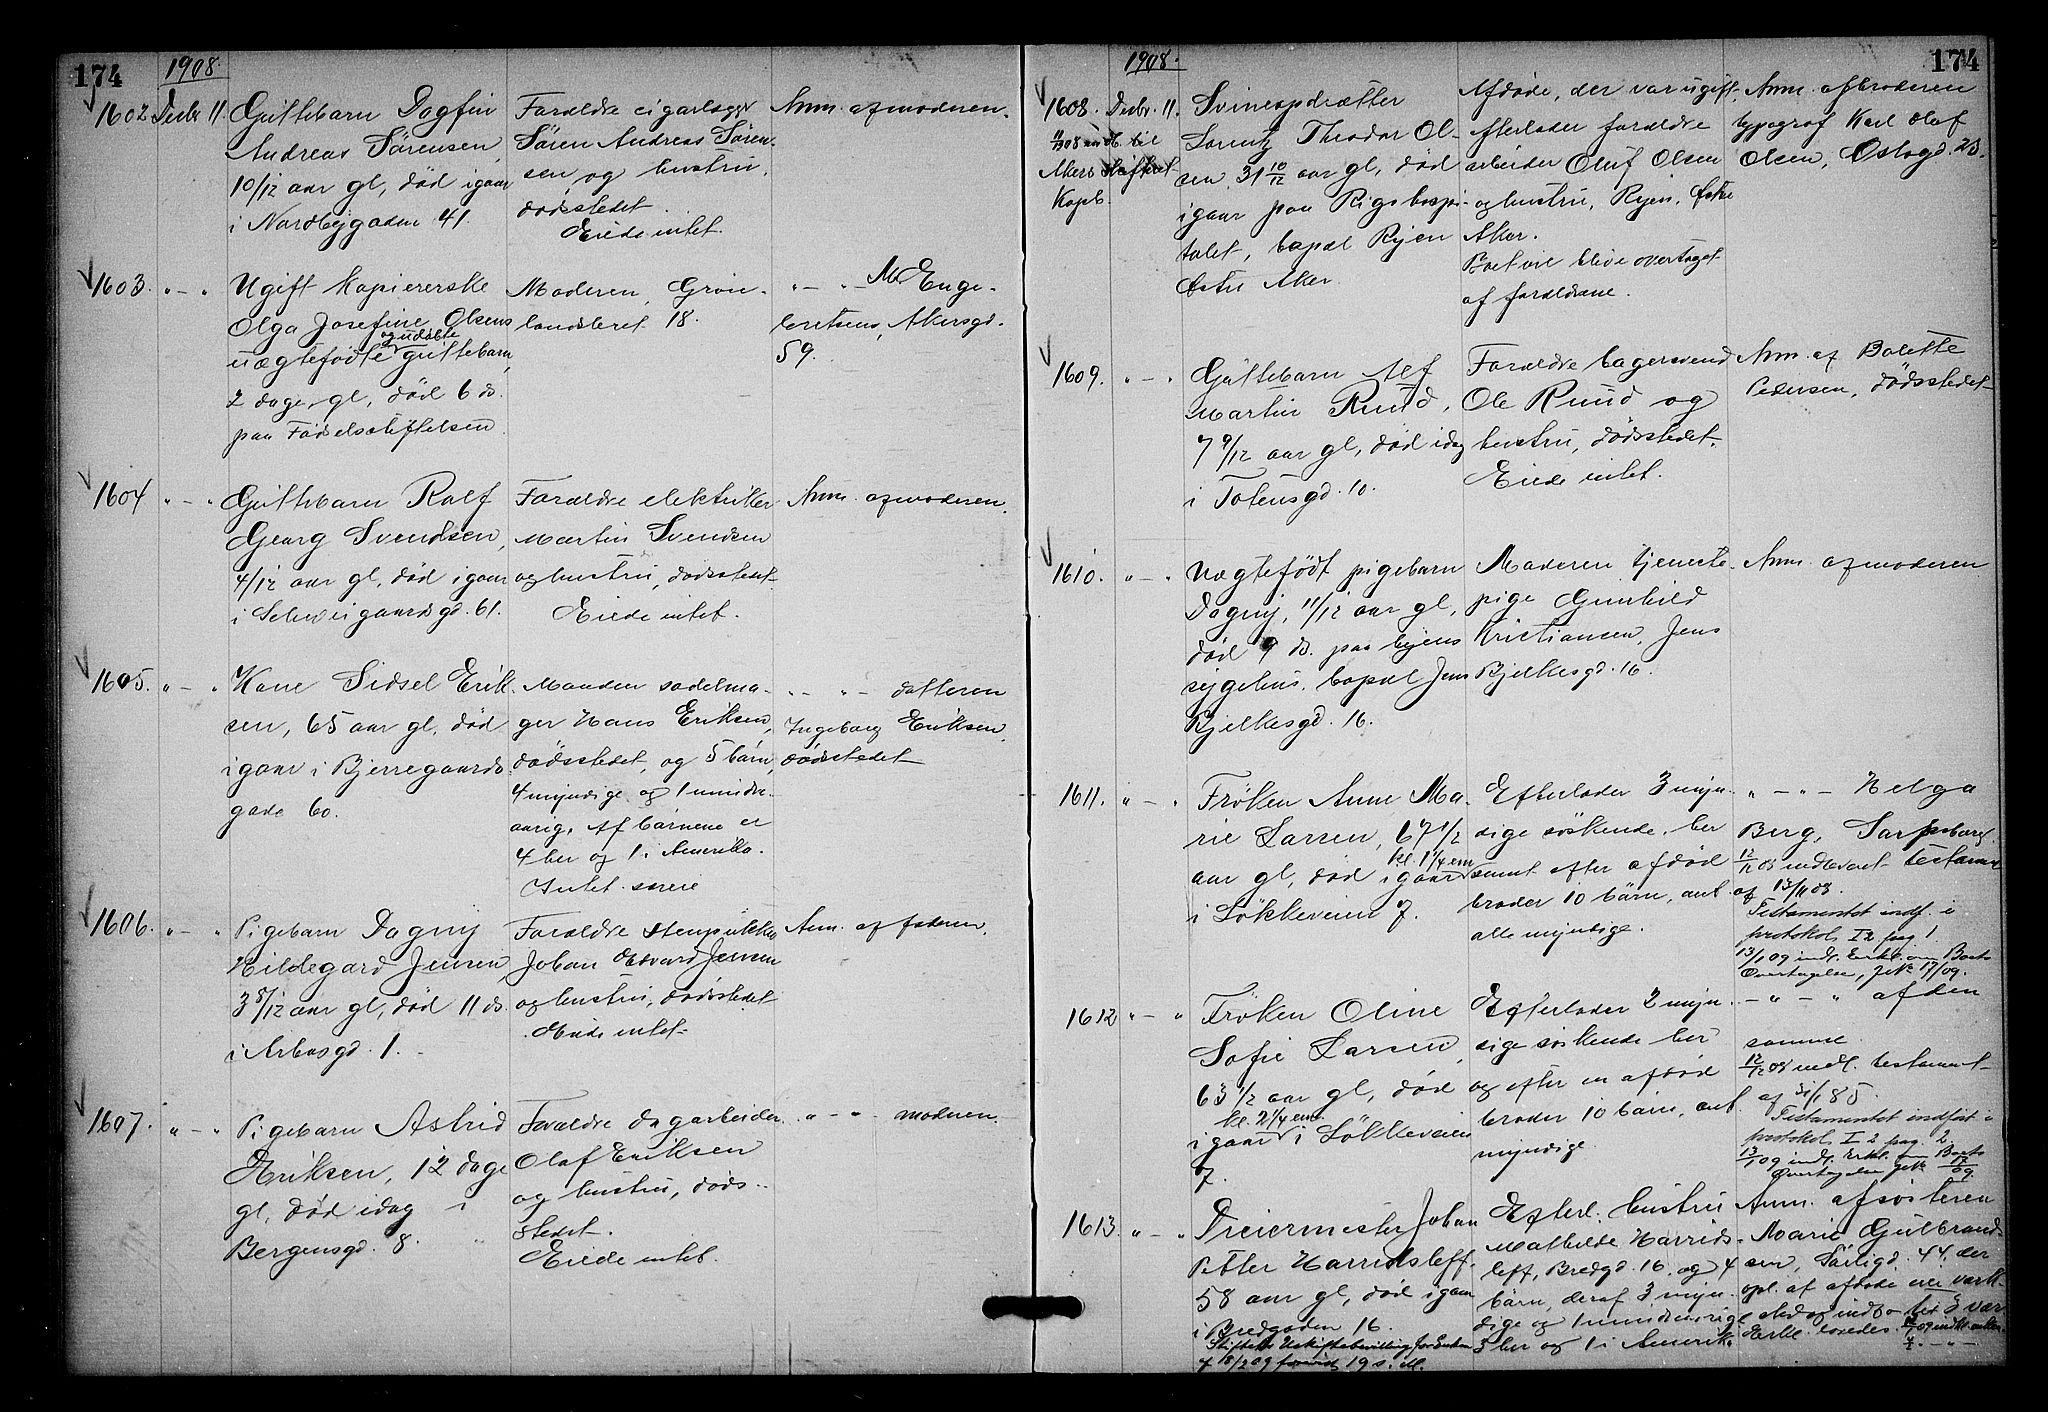 174
1908
1602 Decbr 11.
Guttebarn Dagfin
Andreas Sörensen,
10/12 aar gl, död igaar
i Nordbygaden 41.
Forældre cigarlager
Sören Andreas Sören-
sen og hustru,
dödsstedet.
Eiede intet.
Anm. af moderen.
1603. " - "
Ugift kopiererske
Olga Josefine Olsens
og udöbte
uægtefödte guttebarn,
2 dage gl, död 6 ds.
paa Födselsstiftelsen
Moderen, Grön-
landsleret 18.
" - " - M. Enge-
bretsen, Akersgd.
59.
1604 " - "
Guttebarn Rolf
Georg Svendsen,
4/12 aar gl, död igaar
i Schweigaardsgd. 61.
Forældre elektriker
Martin Svendsen
og hustru, dödsstedet.
Eiede intet.
Anm. af moderen.
1605. " - "
Kone Sidsel Erik-
sen, 65 aar gl, död
igaar i Bjerregaards-
gade 60.
Manden sadelma-
ger Hans Eriksen,
dödsstedet, og 5 börn,
4 myndige og 1 mindre-
aarig. Af börnene er
4 her og 1 i Amerika.
Intet særeie
" - " - datteren
Ingeborg Eriksen,
dödsstedet
1606. " - "
Pigebarn Dagny
Hildegard Jensen,
3 8/12 aar gl, död 11 ds.
i Arbosgd. 1.
Forældre
Johan Edvard Jensen
og hustru, dödsstedet
Eiede intet
Anm. af faderen.
1607. " - "
Pigebarn Astrid
Eriksen, 12 dage
gl, död idag i
Bergensgd. 8.
Forældre dagarbeider
Olaf Eriksen
og hustru, döds-
stedet.
Eiede intet.
" - " - moderen.
174
1908.
1608. Decbr. 11.
til
Akers
Svineopdrætter
Lorentz Theodor Ol-
sen 31 10/12 aar gl, död
igaar paa Rigshospi-
talet, bopæl Ryen
Östre Aker
Afdöde, der var ugift,
efterlader forældre
arbeider Oluf Olsen
og hustru, Ryen, Östre
Aker.
Boet vil blive overtaget
af forældrene.
Anm. af broderen
typograf Karl Olaf
Olsen, Oslogd. 23.
1609. " - "
Guttebarn Alf
Martin Ruud,
7 9/12 aar gl, död idag
i Totensgd. 10.
Forældre bagersvend
Ole Ruud og
hustru, dödsstedet.
Eiede intet.
Anm. af Bolette
Pedersen, dödsstedet
1610. " - "
Uægtefödt pigebarn
Dagny, 11/12 aar gl,
död 9 ds. paa byens
sygehus, bopæl Jens
Bjelkesgd. 16.
Moderen tjeneste-
pige Gunhild
Kristiansen, Jens
Bjelkesgd. 16.
Anm. af moderen
1611. " - "
Fröken Anne Ma-
rie Larsen, 67 1/2
kl. 1 1/4 em
aar gl, död igaar
i Lökkeveien 7.
Efterlader 3 myn-
dige söskende her
samt efter afdöd
broder 10 börn, ant.
alle myndige.
" - " - Helga
Berg, Sarpsborg
12/12 08 indleveret testament
af 13/11 03.
Testamentet indf. i
protokol I 2 pag 1.
13/1 09 indl. Erkl. om Boets
Overtagelse, 17/09.
1612 " - "
Fröken Oline
Sofie Larsen,
63 1/2 aar gl, död
kl. 2 1/4 em.
igaar i Lökkeveien
7.
Efterlader 2 myn-
dige söskende her
og efter en afdöd
broder 10 börn, ant.
myndige
- " - " af den
samme.
12/12 08 indl. testament
af 31/1 85.
Testamentet indföst i
protokol I 2 pag. 2.
13/1 09 indl. Erkl. om Boets
Overtagelse 17/09
1613. " - "
Dreiermester Johan
Petter Harridsleff,
58 aar gl, död igaar
i Bredgaden 16.
18/2 09
Efterl. hustru
Mathilde Harrids-
leff, Bredgd. 16, og 4
börn, deraf 3 myn-
dige og 1 mindreaarig
3 her og 1 i Amerik.
Anm. af sösteren
Marie Gulbrand-
sen, Sörligd. 44, der
opl. at afdöde eier værk-